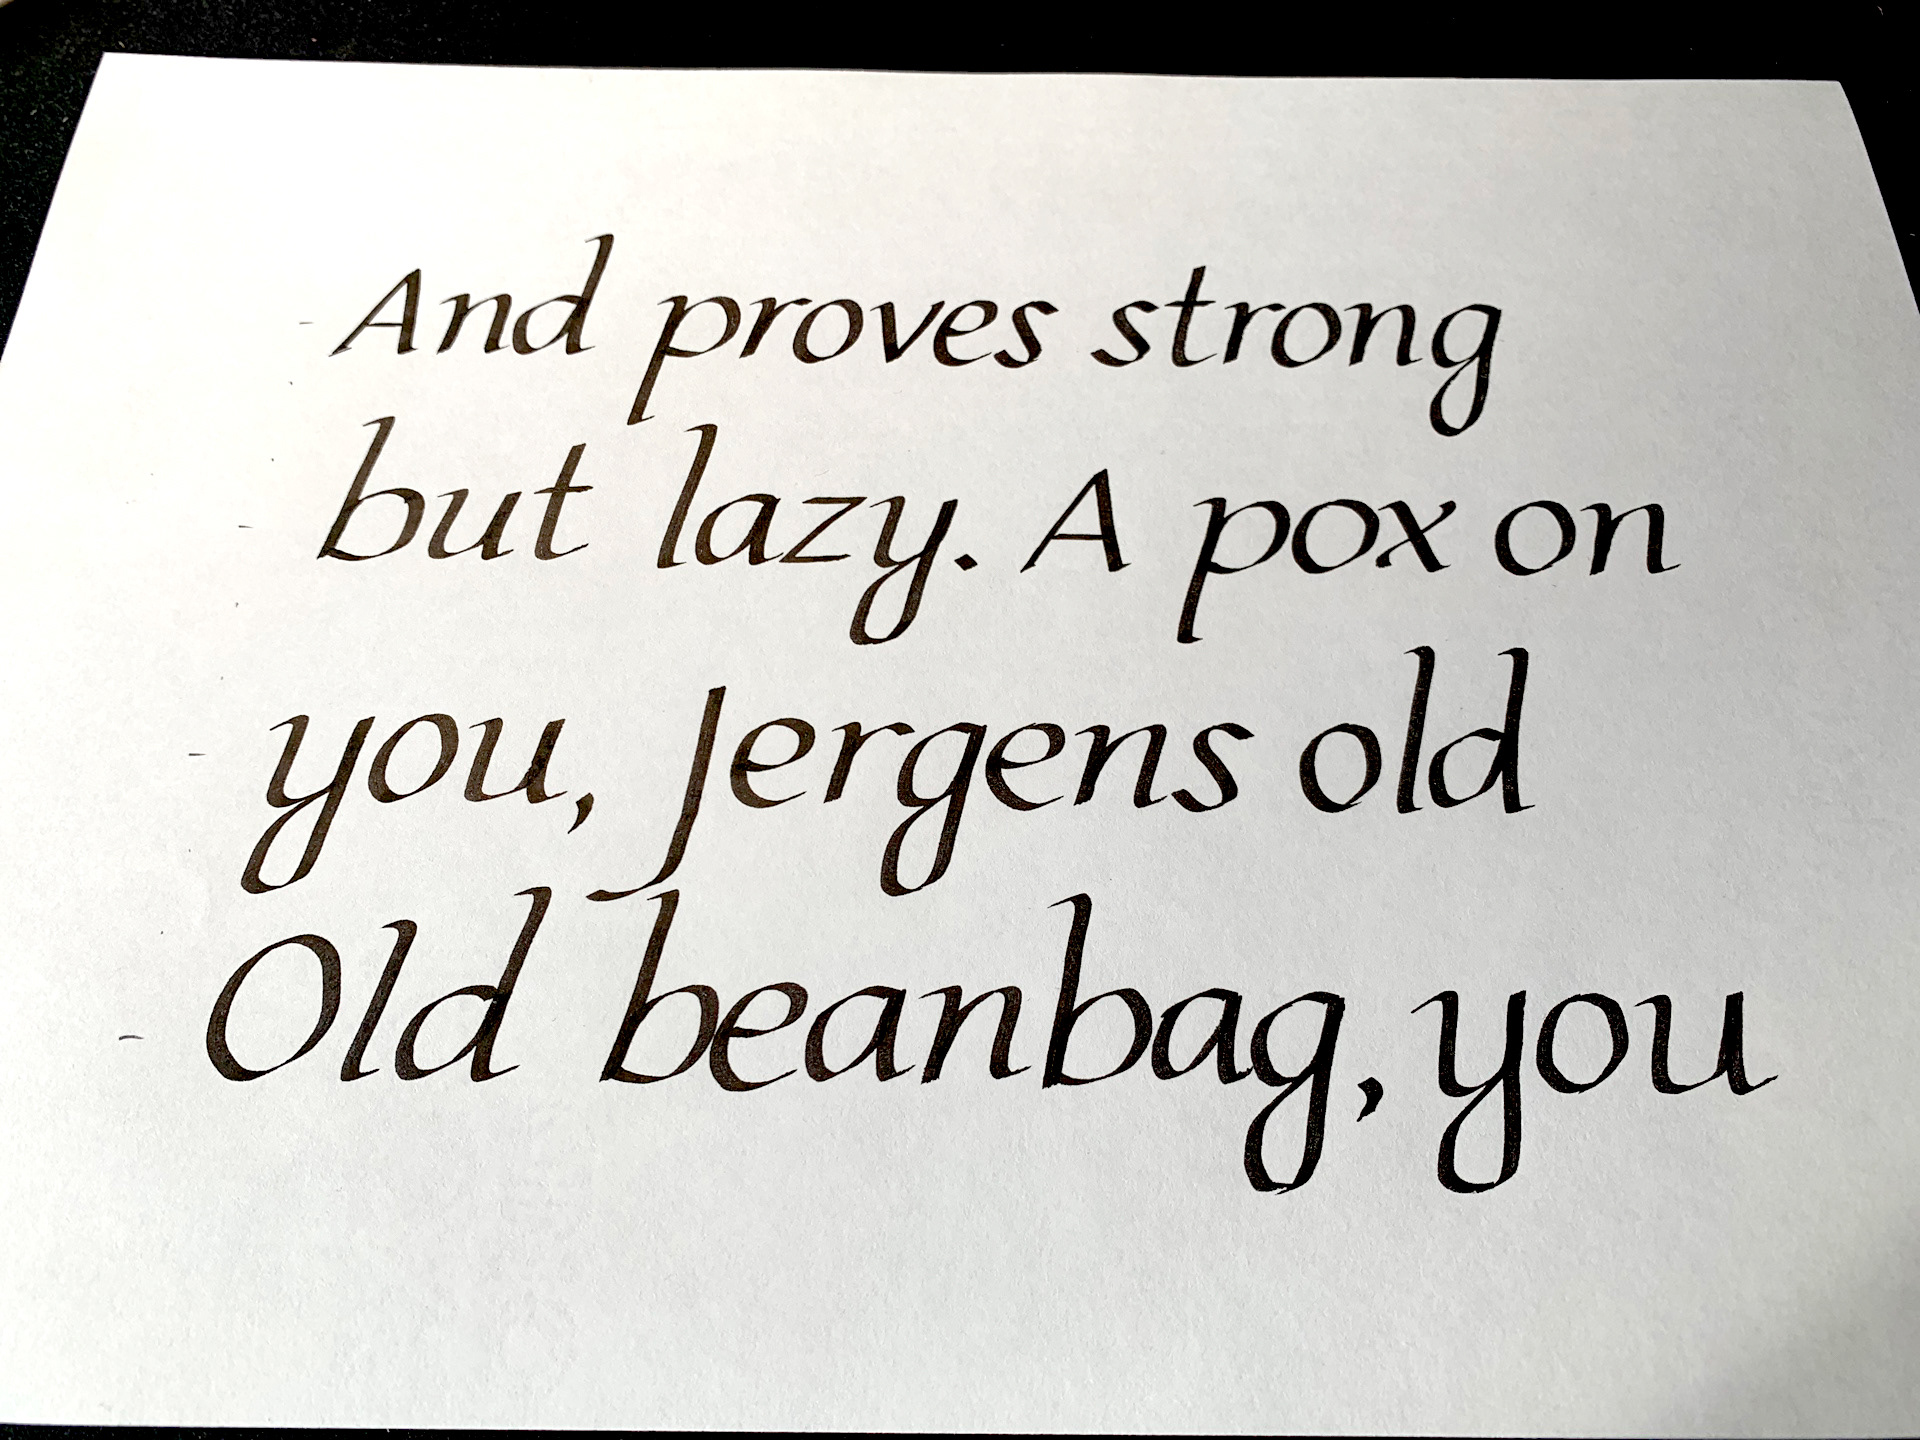 And proves strong
but lazy. A pox on
you, Jergens old
Old beanbag, you